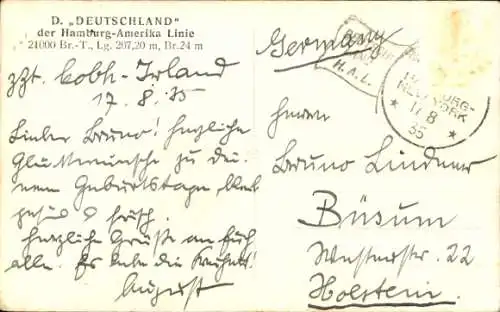 D. „DEUTSCHLAND"
der Hamburg-Amerika Linie
21000 Br.-T., Lg. 207,20 m, Br. 24 m
zzt. Cobh - Irland
17.8.35
Lieber Bruno! Herzliche
Glückwünsche zu dei-
nem Geburtstage, bleib
gesund & frisch.
Herzliche Grüße an Euch
alle. Es lebe die Freiheit!
August
Germany
H.A.L.
HAMBURG-
NEW YORK
* 17 8 *
35
Herrn
Bruno Lindner
Büsum
22
Holstein.